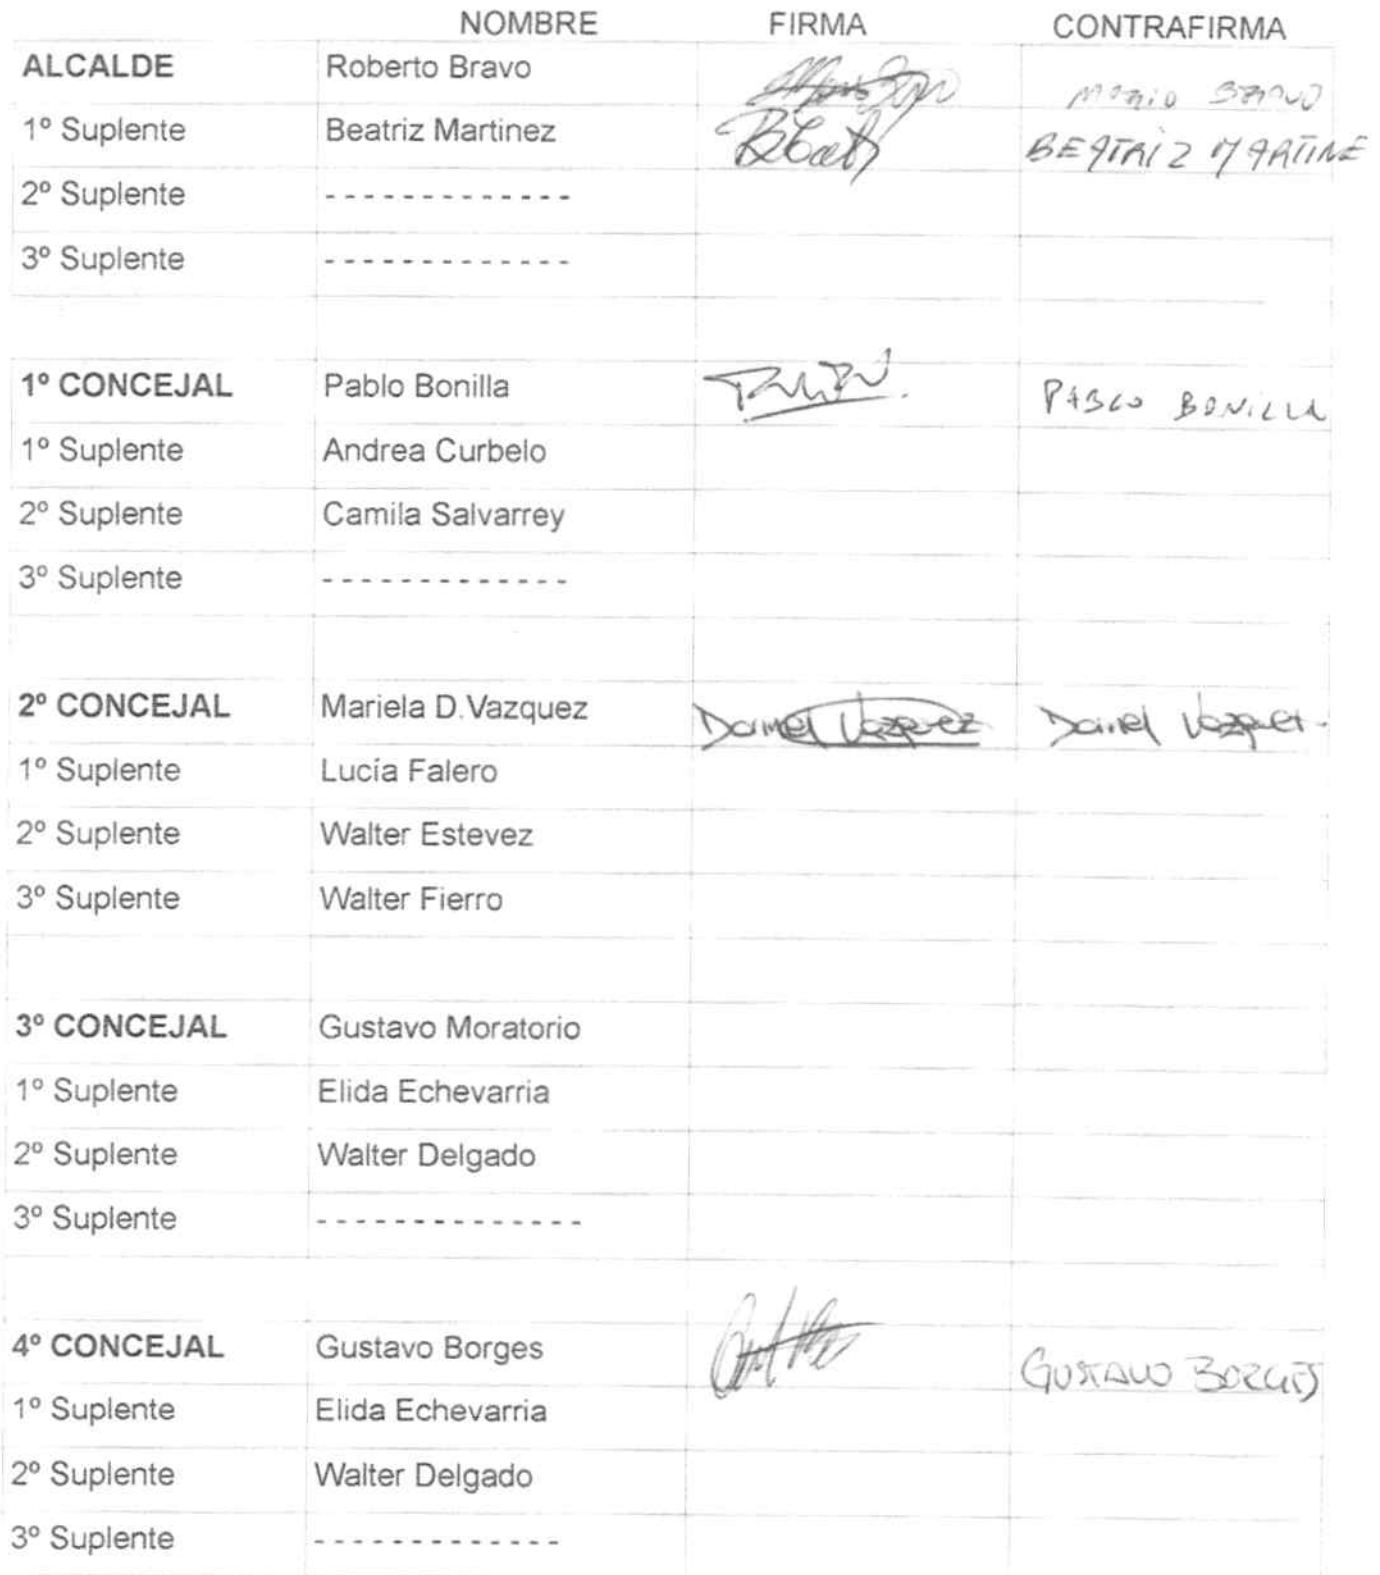 NOMBRE FIRMA CONTRAFIRMA
ALCALDE Roberto Bravo Mario Bravo
1º Suplente Beatriz Martinez BEATRIZ MARTINE
2º Suplente -------------
3º Suplente -------------
1º CONCEJAL Pablo Bonilla PABLO BONILLA
1º Suplente Andrea Curbelo
2º Suplente Camila Salvarrey
3º Suplente -------------
2º CONCEJAL Mariela D.Vazquez Daniel Vazquez Daniel Vazquez
1º Suplente Lucía Falero
2º Suplente Walter Estevez
3º Suplente Walter Fierro
3º CONCEJAL Gustavo Moratorio
1º Suplente Elida Echevarria
2º Suplente Walter Delgado
3º Suplente --------------
4º CONCEJAL Gustavo Borges GUSTAVO BORGES
1º Suplente Elida Echevarria
2º Suplente Walter Delgado
3º Suplente -------------